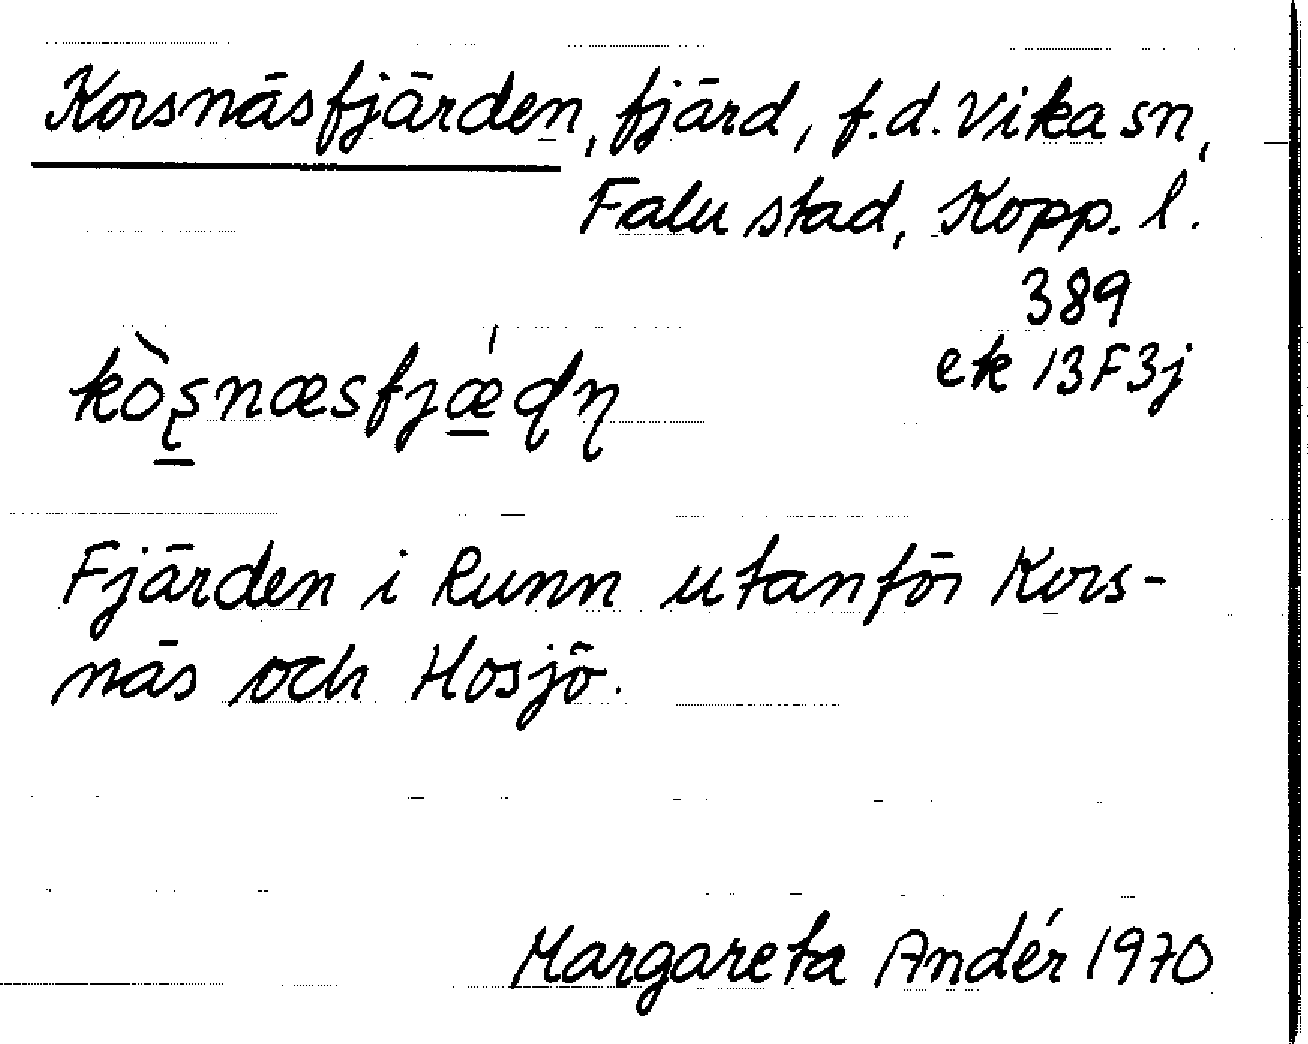 Korsnäsfjärden, fjärd, f.d. Vika sn,
Falu stad, Kopp. l.
389
ek 13F3j
kò̱ʂnæsfjǽ̱ɖɳ
Fjärden i Runn utanför Kors-
näs och Hosjö.
Margareta Andér 1970